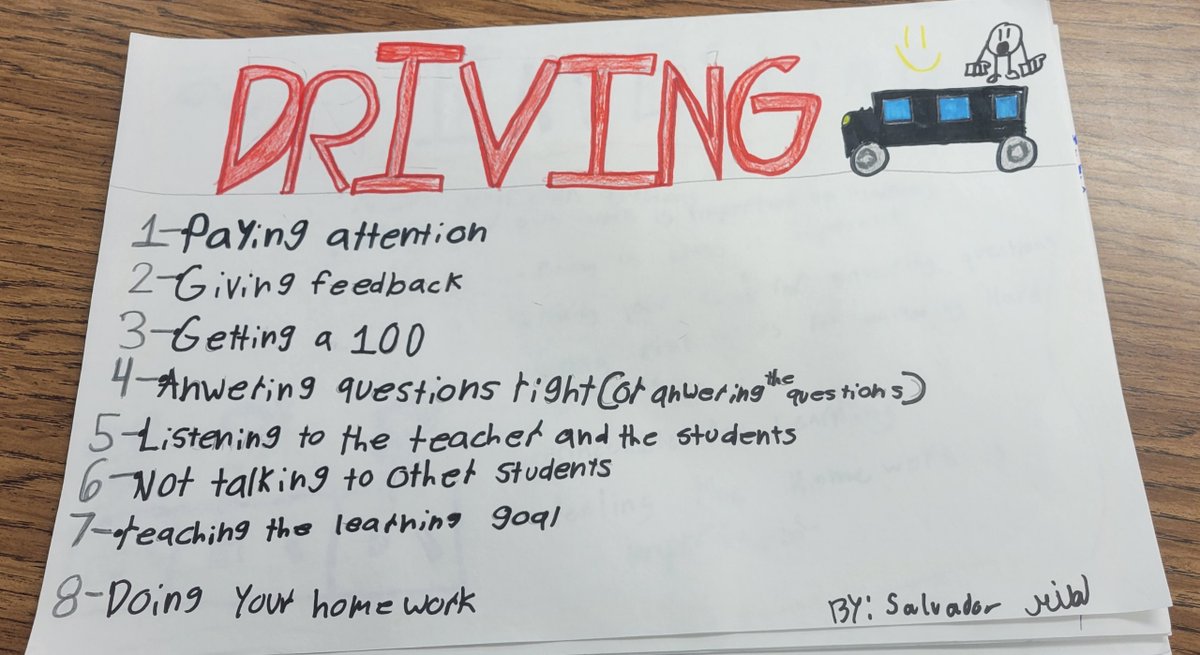 DRIVING
1-Paying attention
2-Giving feedback
3-Getting a 100
4-Anwering questions right(or anwering the questions)
5-Listening to the teacher and the students
6-Not talking to other students
7-reaching the learning goal
8-Doing Your homework
BY: Salvador